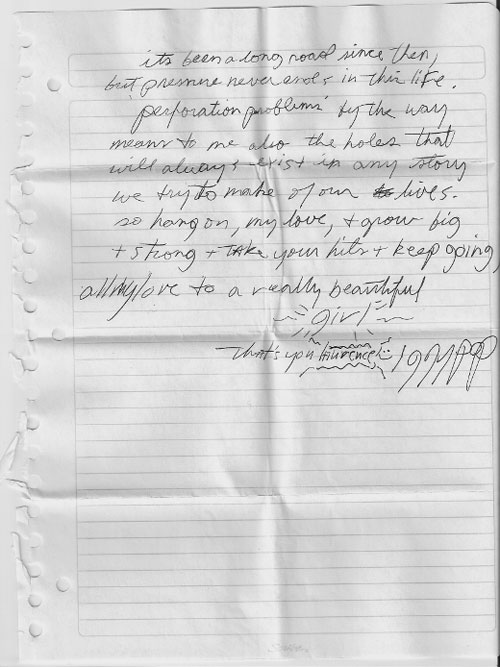 its been a long road since then,
but pressure never ends in this life.
'perforation problems' by the way
means to me also the holes that
will always exist in any story
we try to make of our lives.
so hang on, my love, + grow big
+ strong + take your hits + keep going,
all my love to a really beautiful
girl
that's you laurence iggy pop